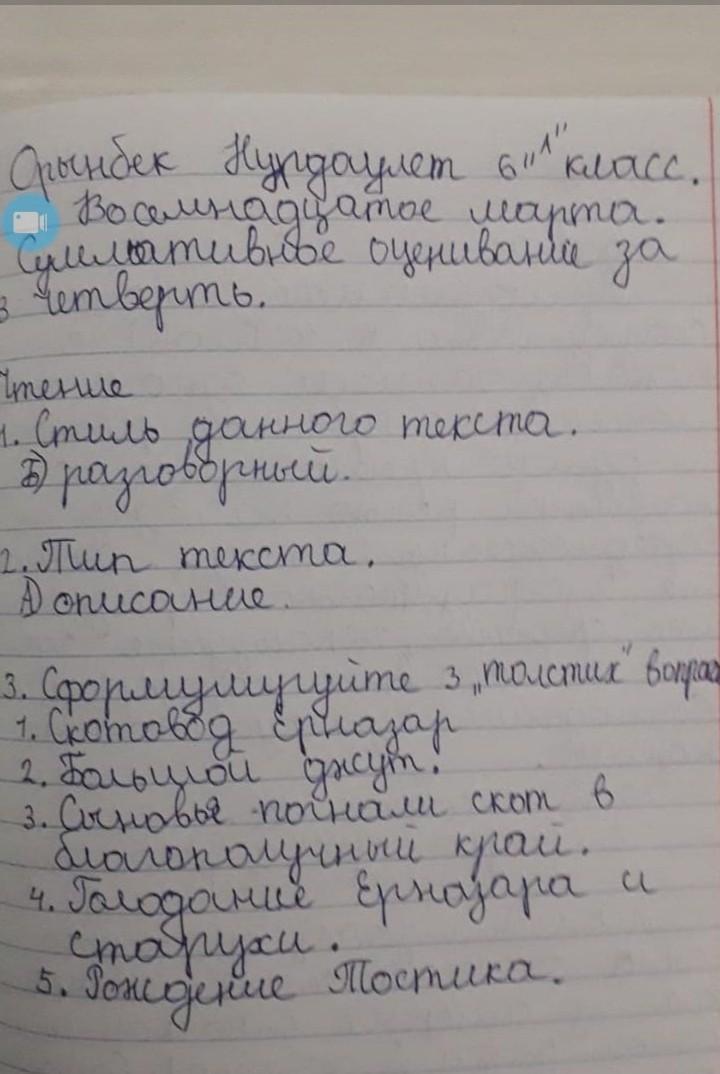 Орынбек Нурдаулет 6 "А" класс.
Восемнадцатое марта.
Суммативное оценивание за
3 четверть.
Чтение
1. Стиль данного текста.
Б) разговорный.
2. Тип текста.
А) описание.
3. Сформулируйте 3 „толстих"
1. Скотовод Ерназар
2. Большой джут.
3. Сыновья погнали скот в
благополучный край.
4. Голодание Ерназара и
старухи.
5. Рождение Тостика.